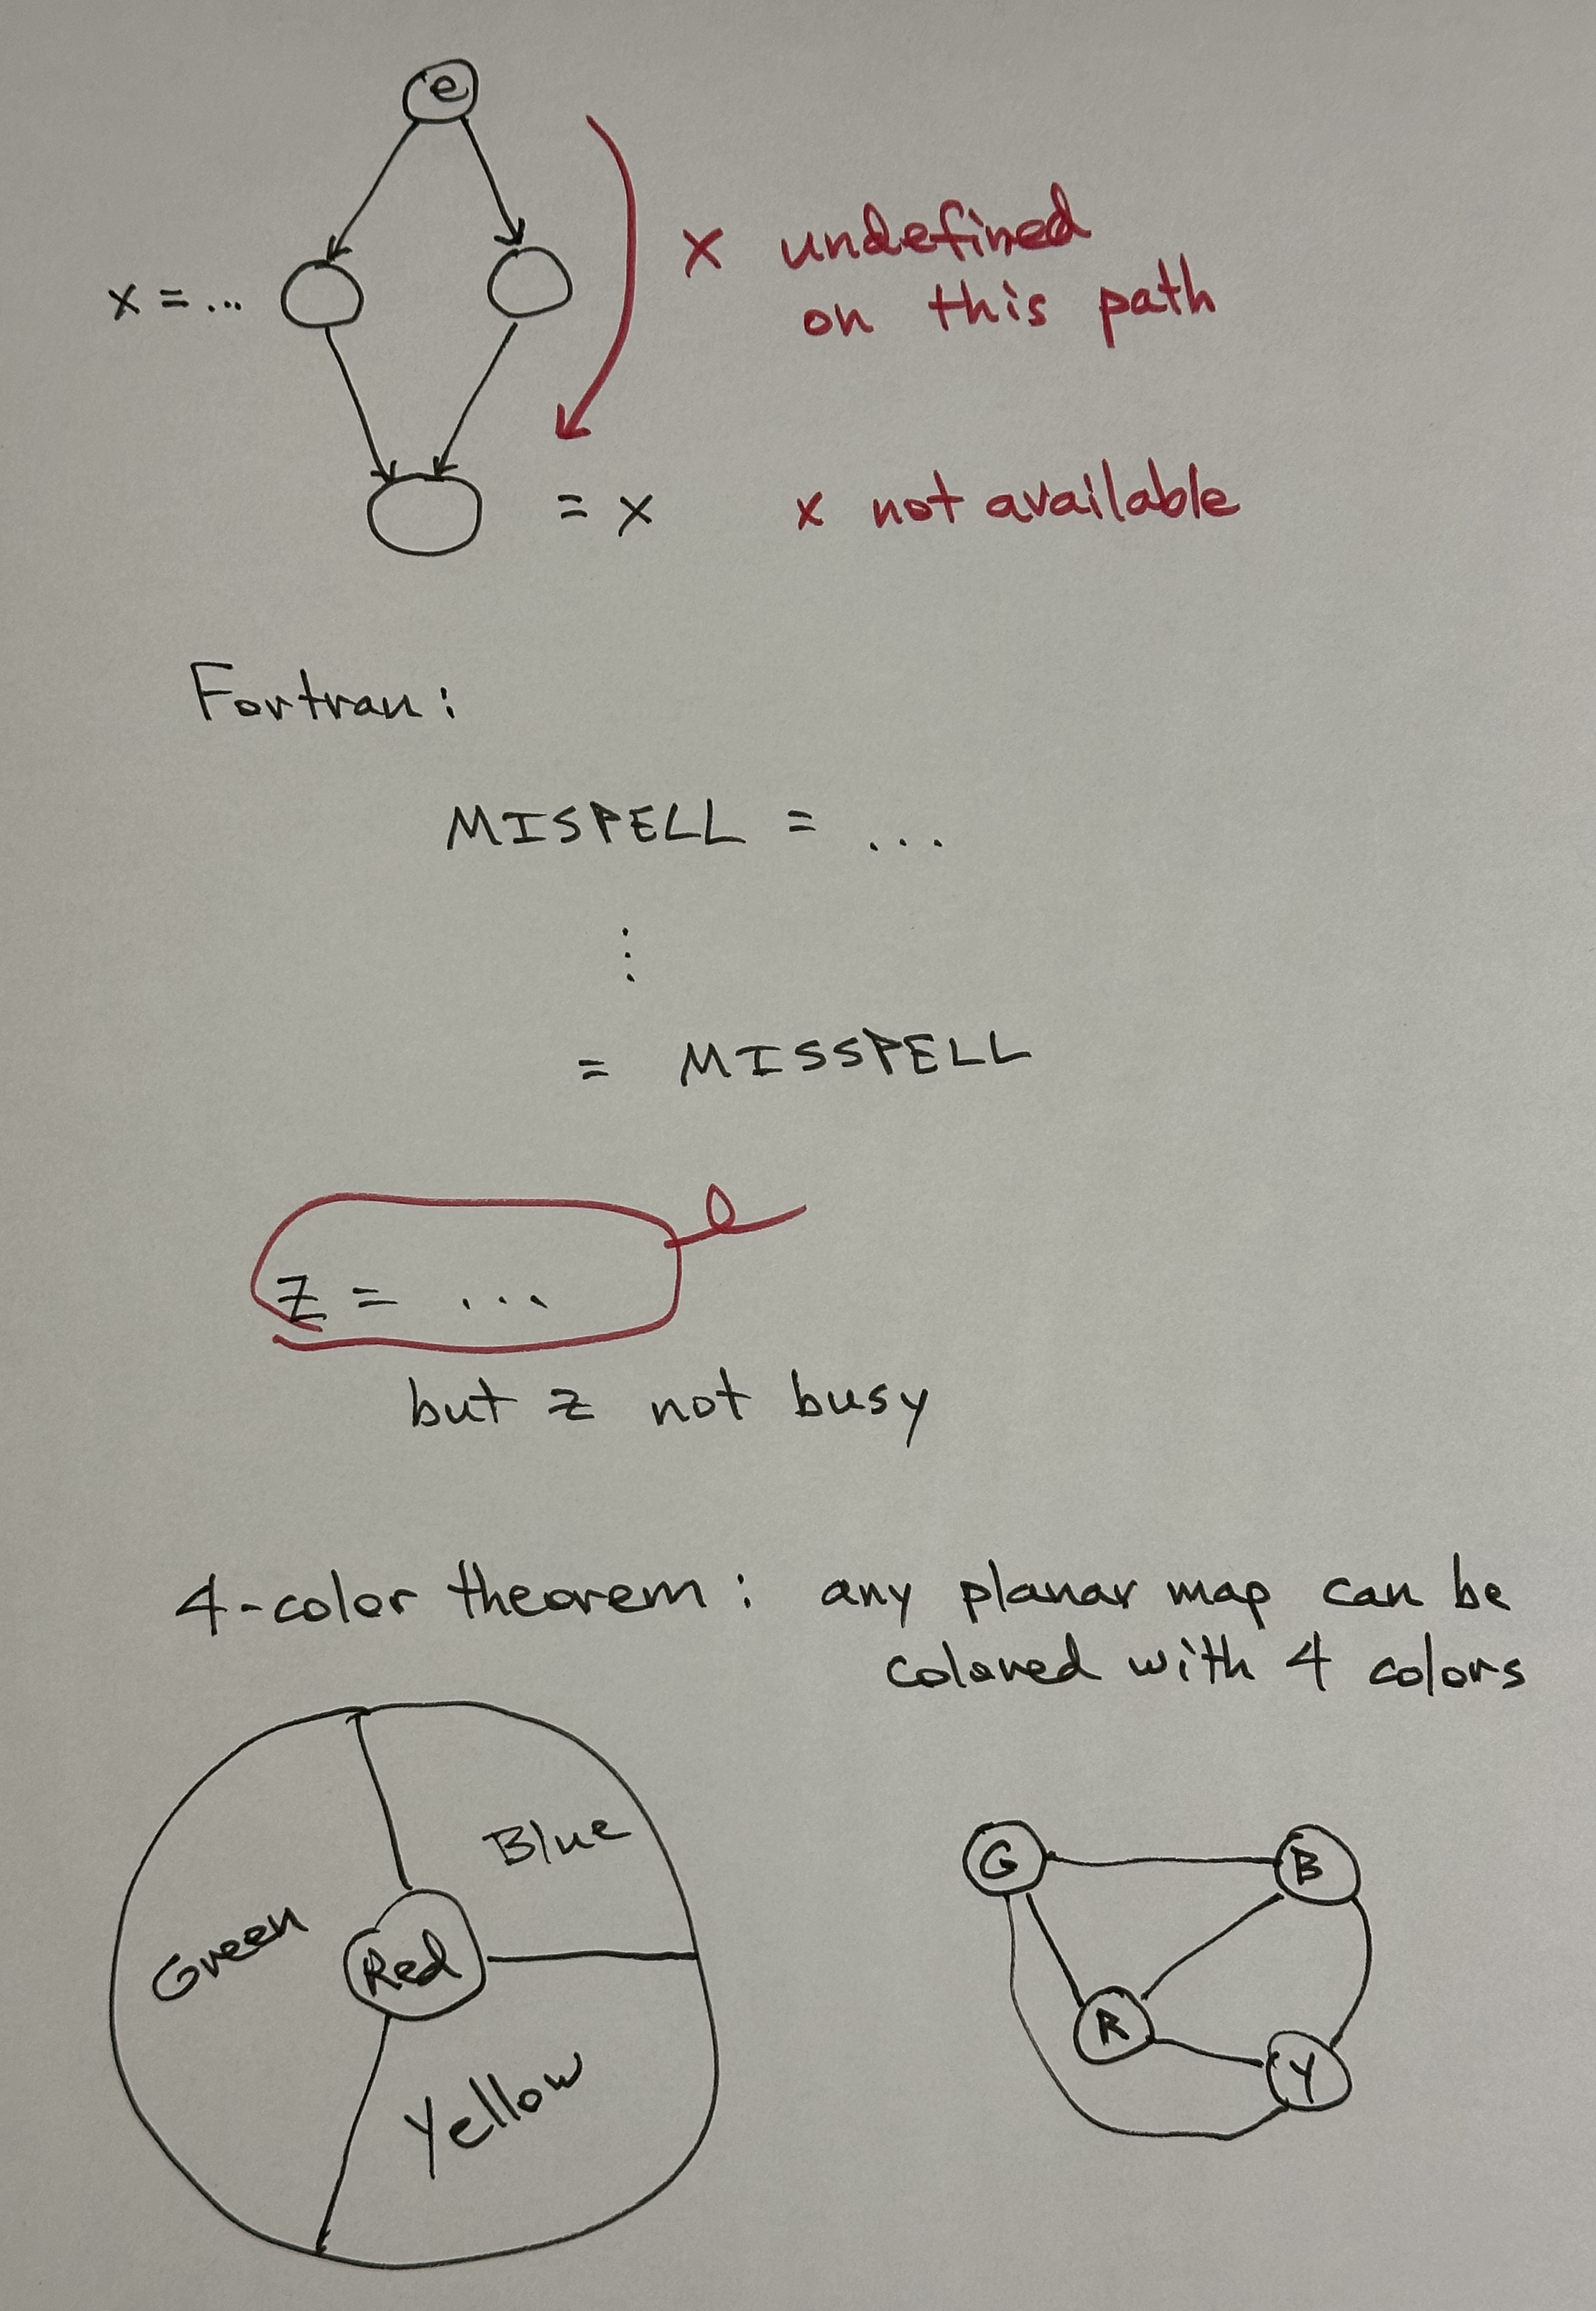 e
x = ...
x undefined
on this path
= x
x not available
Fortran:
MISPELL = ...
⋮
= MISSPELL
z = ...
but z not busy
4-color theorem: any planar map can be
colored with 4 colors
Blue
Green
Red
Yellow
G
B
R
Y